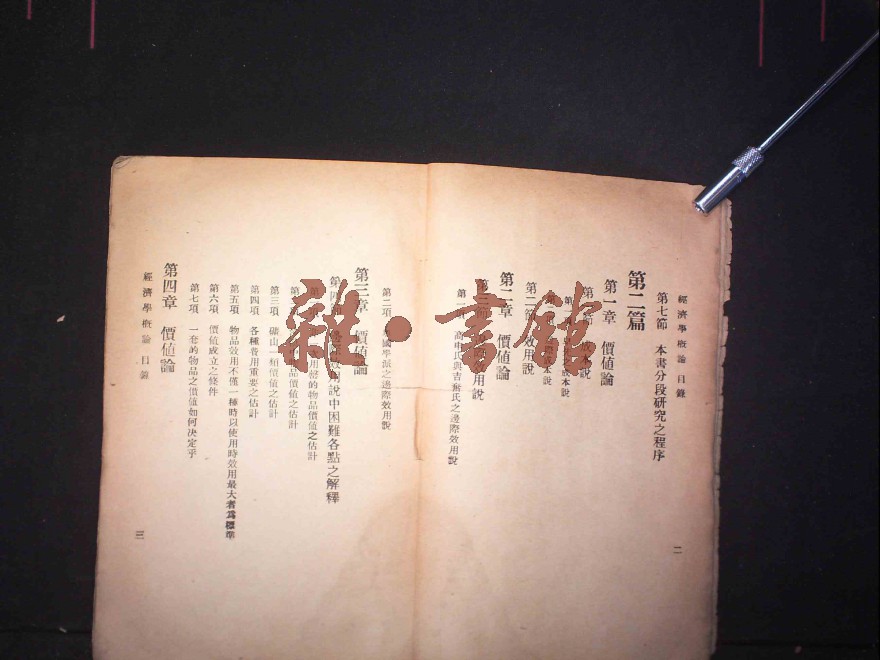 經濟學概論 目錄
第七節 本書分段研究之程序
第二篇
第一章 價值論
第 節 本說
第 成本說
第 本說
第二節 效用說
第二章 價值論
第 效用說
第一 高申氏與吉 氏之邊際效用說
二
第二項 國學派之邊際效用說
第三章 價值論
第四 說中困難各點之解釋
用 的物品價值之估計
第 品價值之估計
第三項 礦山一類價值之估計
第四項 各種費用重要之估計
第五項 物品效用不僅一種時以使用時效用最大者為標準
第六項 價值成立之條件
第七項 一套的物品之價值如何決定乎
第四章 價值論
經濟學概論 目錄
三
雜·書館